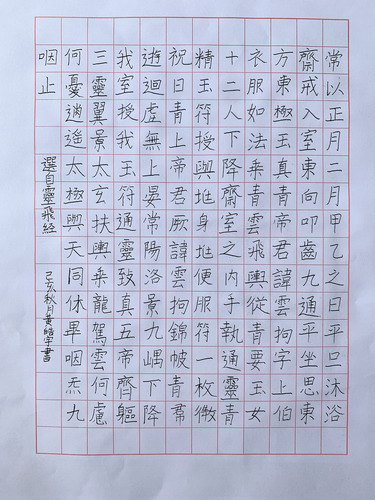 常以正月二月甲乙之日平旦沐浴
齋戒入室東向叩齒九通平坐思東
方東極玉真青帝君諱雲拘字上伯
衣服如法乘青雲飛輿從青要玉女
十二人下降齋室之內手執通靈青
精玉符授與地身地便服符一枚微
祝曰青上帝君厥諱雲拘錦帔青羣
遊迴虛無上晏常陽洛景九嵎下降
我室授我玉符通靈致真五帝齊軀
三靈翼景太玄扶輿乘龍駕雲何慮
何憂逍遙太極與天同休畢咽炁九
咽止
選自靈飛經
己亥秋月黃皓宇書